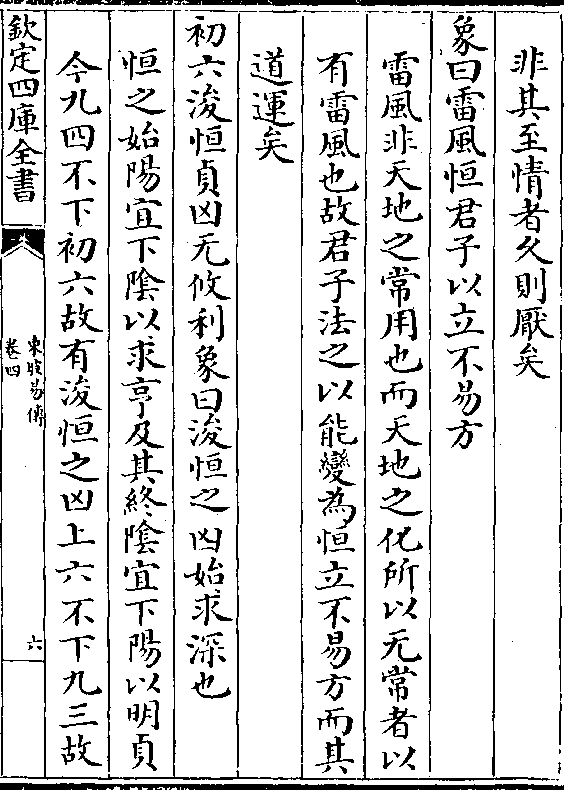 非其至情者久則厭矣
象曰雷風恒君子以立不易方
雷風非天地之常用也而天地之化所以无常者以
有雷風也故君子法之以能變為恒立不易方而其
道運矣
初六浚恒貞凶无攸利象曰浚恒之凶始求深也
恒之始陽宜下陰以求亨及其終陰宜下陽以明貞
今九四不下初六故有浚恒之凶上六不下九三故
欽定四庫全書
東坡易傳
卷四
六